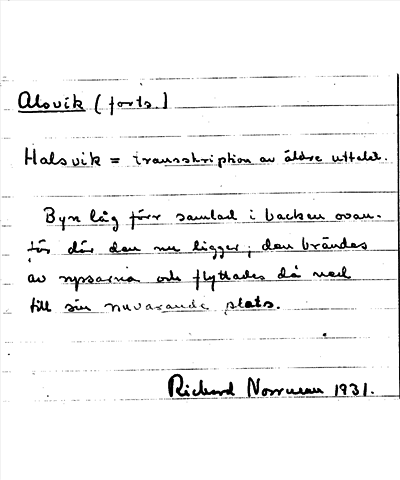 Alsvik (forts.)
Halsvik = transskription av äldre uttalet.
Byn låg förr samlad i backen ovan-
för där den nu ligger; den brändes
av ryssarna och flyttades då ned
till sin nuvarande plats.
Richard Norrman 1931.